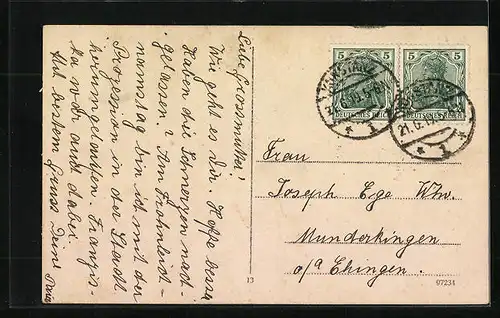 Liebe Grossmutter!
Wie geht es Dir. Hoffe besser
Haben die Schmerzen nach-
gelassen? Am Frohnleich-
namstag bin ich mit der
Prozession in der Stadt
herumgelaufen. Franzis-
ka war auch dabei
Mit bestem Gruss Deine
5 5 5 5
DEUTSCHES REICH
KONSTANZ
* 1 *
21.6.
Frau
Joseph Ege Wtw.
Munderkingen
o/a Ehingen.
13
07234